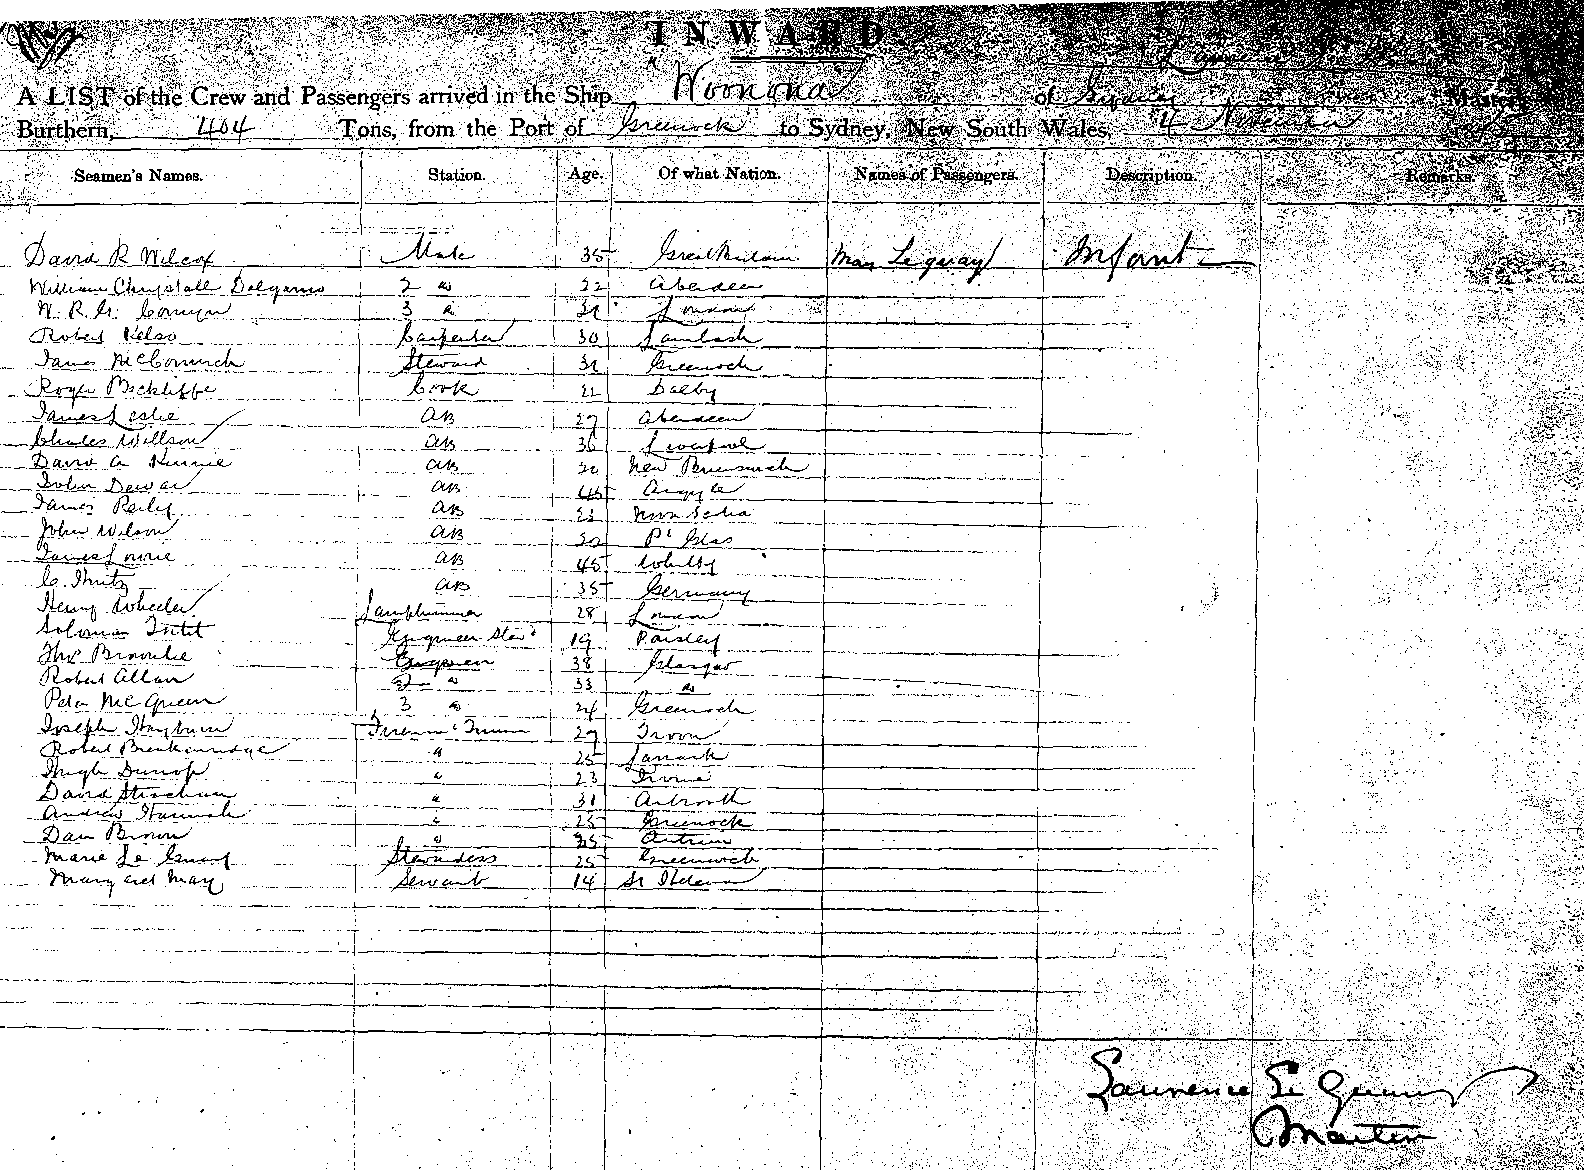 INWARD
A LIST of the Crew and Passengers arrived in the Ship "Woonona" of Sydney Master,
Burthern, 404 Tons, from the Port of Greenock to Sydney, New South Wales, 4 November
Seamen's Names. Station. Age. Of what Nation. Names of Passengers. Description. Remarks.
David R Wilcox Mate 35 Great Britain May Leguay Infant
William Chrystall Dalgarno 2 " 22 Aberdeen
W. R. G. Comyn 3 " London
Robert Kelso Carpenter 30 Lamlash
James McCormick Steward Greenock
Roger Beckliffe Cook Dalby
James Leslie AB 27 Aberdeen
Charles Willson AB 36 Liverpool
David A Kinnie AB New Brunswick
John Dewar AB 45 Argyle
James Reily AB Nova Scotia
John Wilson AB Pt Glas
James Lowrie AB 45 Whitby
C. AB 35 Germany
Henry Wheeler Lamptrimmer 28 London
Solomon Engineer Stewd 19 Paisley
Thos Brownlie Engineer 38 Glasgow
Robert Allan 2 " 33 "
Peter McQueen 3 " 24 Greenock
Joseph Hayburn Fireman & Trimmer 27 Troon
Robert Breakenridge " 25 Lanark
Hugh Dunlop " 23 Irvine
David Strachan " 31 Arbroath
Andrew Hannah " 25 Greenock
Dan Brown " 25 Antrim
Marie Le Guay Stewardess 25 Greenock
Margaret May Servant 14 St Helena
Laurence Le Guay
Master